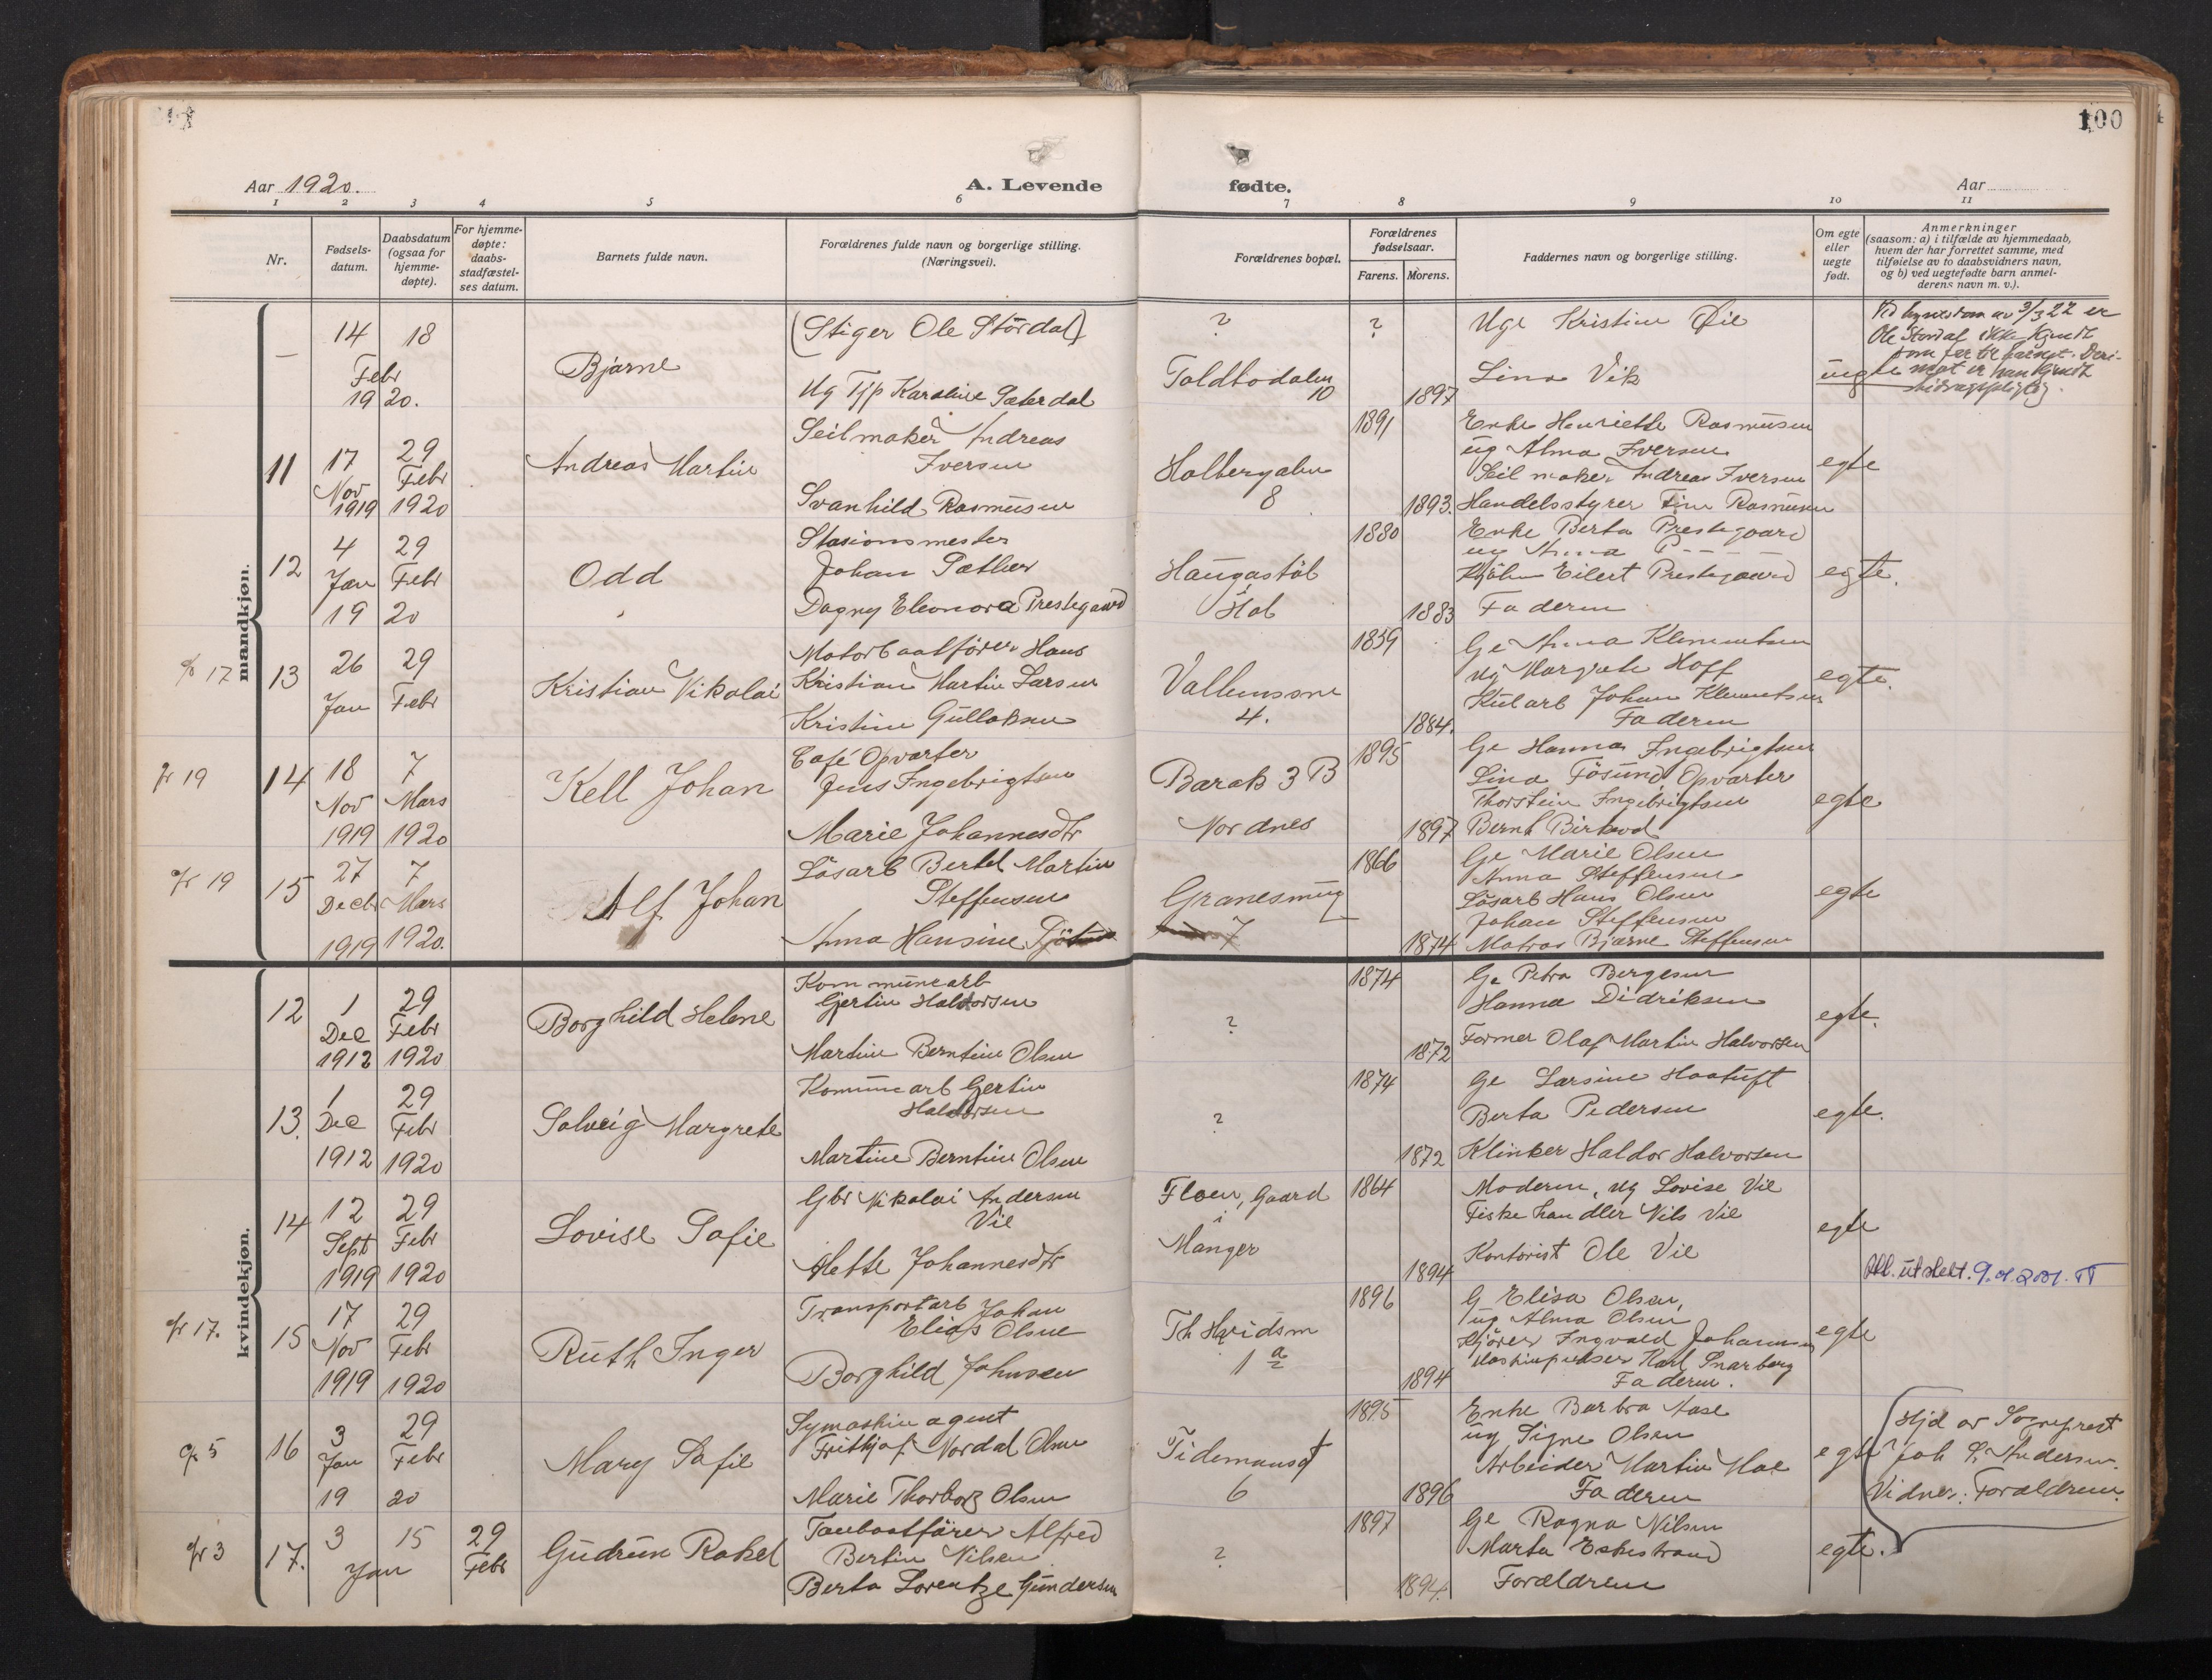 100
Aar 1920.
A. Levende
fødte.
Aar
1 2 3 4 5 6 7 8 9 10 11
Nr.
Fødsels-
datum.
Daabsdatum
(ogsaa for
hjemme-
døpte).
For hjemme-
døpte:
daabs-
stadfæstel-
ses datum.
Barnets fulde navn.
Forældrenes fulde navn og borgerlige stilling.
(Næringsvei).
Forældrenes bopæl.
Forældrenes
fødselsaar.
Farens. Morens.
Faddernes navn og borgerlige stilling.
Om egte
eller
uegte
født.
Anmerkninger
(saasom: a) i tilfælde av hjemmedaab,
hvem der har forrettet samme, med
tilføielse av to daabsvidners navn,
og b) ved uegtefødte barn anmel-
derens navn m. v.).
mandkjøn.
—
14 18
Febr
1920.
Bjarne
(Stiger Ole Stördal)
Ug Tjp Karoline Sæterdal
?
Toldbodalm
10
?
1897
Uge Kristine Öie
Lina Vik
uegte
3/3 22 er
Ole Stordal ikke kjendt
som far til barnet. Deri-
mot er han kjendt
bidragspligtig.
11
17
Nov
1919
29
Febr
1920
Andreas Martin
Seilmaker Andreas
Iversen
Svanhild Rasmüsen
Holbergalm
8
1891
1893.
Enke Henriette Rasmüsen
üg Alma Iversen
Seilmaker Andreas Iversen
Handelsstyrer Finn Rasmüsen
egte
12
4
Jan
19
29
Febr
20
Odd
Stasionsmester
Johan Sæther
Dagny Eleonora Prestegaard
Haügastöl
Hol
1880
1883
Enke Berta Prestegaard
ug Anna P----
Eilert Prestegaard
Faderen
egte.
fr 17
13
26
Jan
29
Febr
Kristian Nikolai
Motorbaatförer Hans
Kristian Martin Larsen
Kristine Gülloksen
4.
1859
1884.
Ge Anna Klementsen
ug Margrete Hoff
Kularb Johan Klementsen
Faderen
egte.
fr 19
14
18
Nov
1919
7
Mars
1920
Kell Johan
Café Opvarter
Jens Ingebrigtsen
Marie Johannesdtr
Barak 3 B
Nordnes
1895
1897
Ge Hanna Ingebrigtsen
Lina Fösund, Opvarter
Thorstein Ingebrigtsen
Bernt Birkvod
egte
fr 19
15
27
Decbr
1919
7
Mars
1920.
Alf Johan
Lösarb Bertel Martin
Steffensen
Anna Hansine
Granesmüg
7
1866
1874
Ge Marie Olsen
Anna Steffensen
Lösarb Hans Olsen
Johan Steffensen
Matros Bjarne Steffensen
egte
kvindekjøn.
12
1
Dec
1912
29
Febr
1920
Borghild Helene
Kommünearb
Gjertin Haldorsen
Martine Berntine Olsen
?
1874
1872
Ge Petra Bergesen
Hanna Didriksen
Former Olaf Martin Halvorsen
egte.
13.
1
Dec
1912
29
Febr
1920
Solveig Margrete
Komünearb Gertin
Haldorsen
Martine Berntine Olsen
?
1874
1872
Ge Larsine Haatuft
Berta Pedersen
Klinker Haldor Halvorsen
egte.
14
12
Sept
1919
29
Febr
1920
Lovise Sofie
Gbr Nikolai Andersen
Vie
Mette Johannesdtr
Floen, Gaard
i
Manger
1864
1894
Moderen, ug Lovise Vie
Fiskehandler Nils Vie
Kontorist Ole Vie
egte
Att. utstedt. 9.01.2001. TT
fr 17.
15
17
Nov
1919
29
Febr
1920
Ruth Inger
Transportarb Johan
Elias Olsne
Borghild Johnsen
Th Hvidsm
1 a
1896
1894
G Elisa Olsen,
ug Alma Olsen
Kjörer Ingvald Johannsen
Maskinpudser Karl Snarberg
Faderen.
egte
fr 5
16
3
Jan
19
29
Febr
20
Mary Sofie
Symaskinagent
Frithjof Nordal Olsen
Marie Thorborg Olsen
Tidemansgt
6
1895
1896
Enke Barbra Aase
üg Signe Olsen
Arbeider Martin Moe
Faderen
egte
Hjd av Sogneprest
Joh S. Andersen.
Vidner: Forældrene.
fr 3
17.
3 15
Jan
29
Febr
Güdrün Rakel
Taubaatförer Alfred
Bertin Nilsen
Berta Lorentze Gündersen
?
1897
1894.
Ge Ragna Nilsen
Marta Eskestrand
Forældrene
egte.